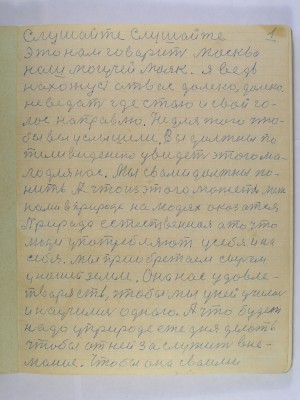 Слушайте слушайте 1
это нам говорит Москва
наш могучий маяк. Я ведь
нахожусь от вас далеко, далеко
не ведат где стою и свой го-
лос направлю. Не для того что-
бы вы услышели. Вы должны по
тиливидению увидет этого ма-
лодля нас. Мы с вами должны по-
нить А что из этого может
нами в природе на людях оказатся
Природа естественная а то что
люди употребляют у себя и на
себя. Мы приобретаем
у нашей земле. Она нас удовле-
творяеть, чтобы мы у ней училис
и научилис одного. А что будет
надо у природе еже дня делать
чтобы от ней заслужит вне-
мание. Чтобы она своими